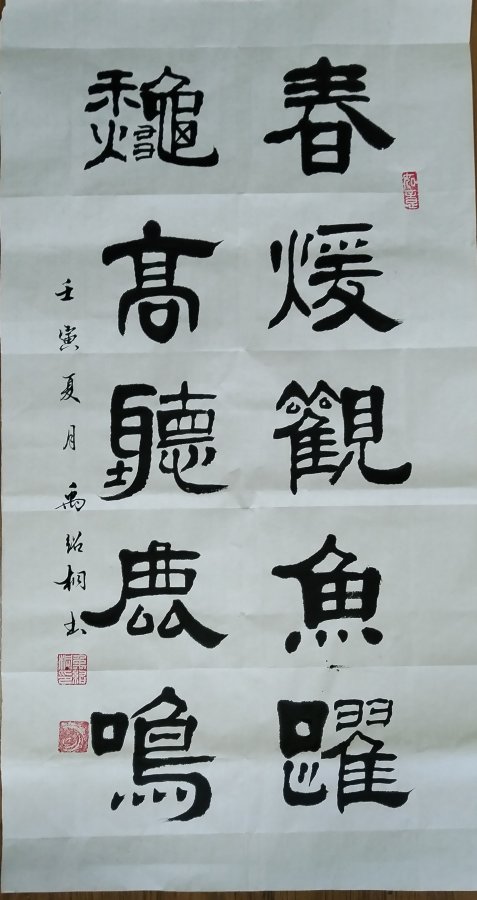 春煖觀魚躍
𪛁高聽鹿鳴
壬寅夏月 禹绍桐书